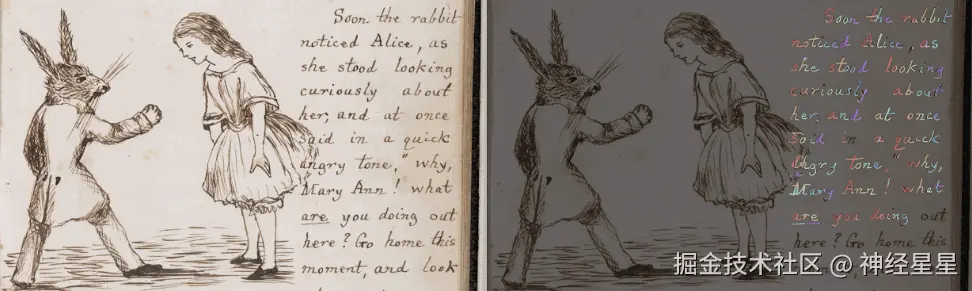 Soon the rabbit
noticed Alice, as
she stood looking
curiously about
her, and at once
said in a quick
angry tone, "why,
Mary Ann! what
are you doing out
here? Go home this
moment, and look
Soon the rabbit
noticed Alice, as
she stood looking
curiously about
her, and at once
said in a quick
angry tone, "why,
Mary Ann! what
are you doing out
here? Go home this
掘金技术社区 @ 神经星星